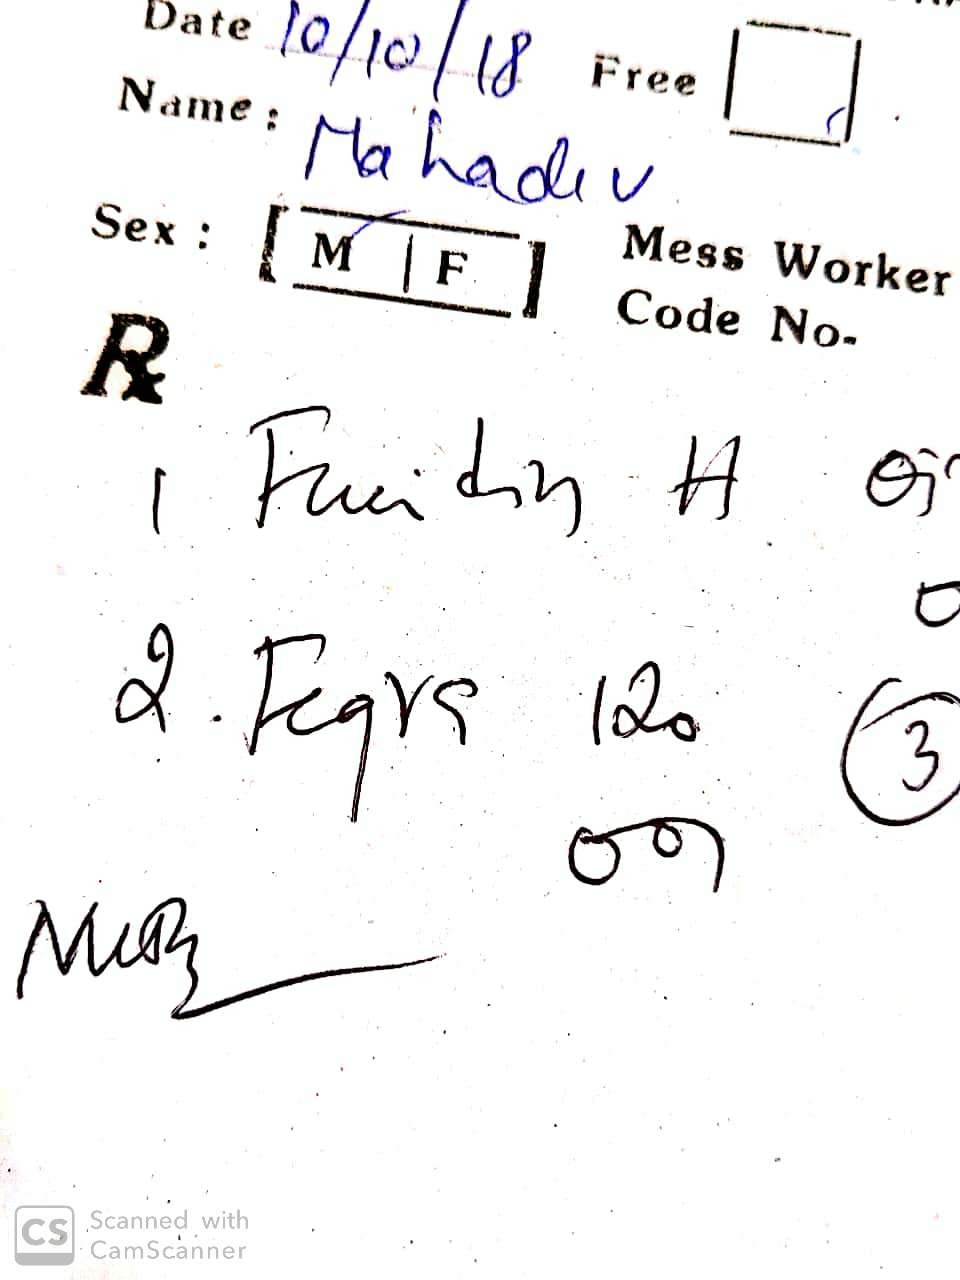 Date 10/10/18 Free
Name : Mahadev
Sex : [ M | F ] Mess Worker
Code No-
Rx
1 Fucidin H
2. Fegra 120 3
CS Scanned with
CamScanner